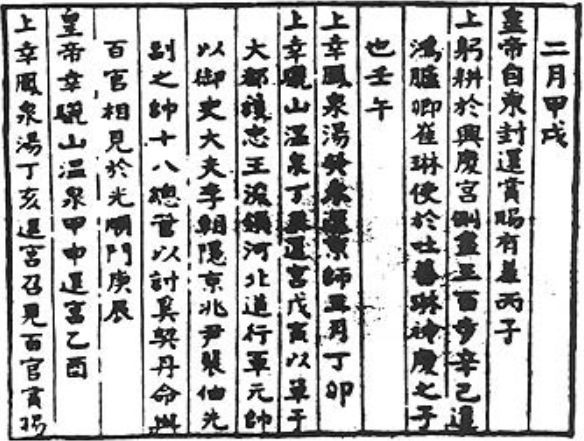 二月甲戌
皇帝自東封還賞賜有差丙子
上躬耕於興慶宮側盡三百步辛己遣
鴻臚卿崔琳使於吐蕃琳神慶之子
也壬午
上幸鳳泉湯癸未還京師月丁卯
上幸驪山温泉丁還宮戊寅以單于
大都護忠王浚領河北道行軍元帥
以御史大夫李朝隱京兆尹裴伷先
副之帥十八總管以討奚契丹命與
百官相見於光順門庚辰
皇帝幸驪山温泉甲申還宮乙酉
上幸鳳泉湯丁亥還宮召見百官賞賜